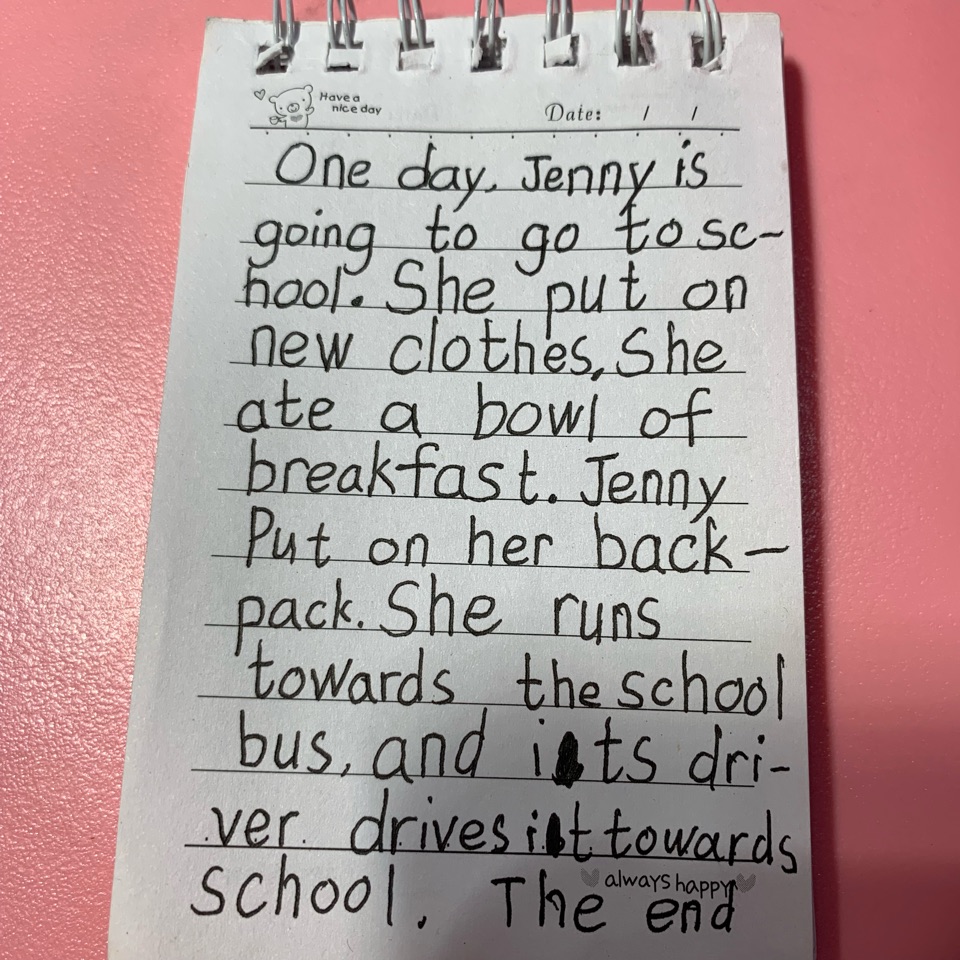 Have a
nice day
Date: / /
One day, Jenny is
going to go to sc-
hool. She put on
new clothes, She
ate a bowl of
breakfast. Jenny
Put on her back-
pack. She runs
towards the school
bus, and its dri-
ver drives it towards
school. The end
always happy